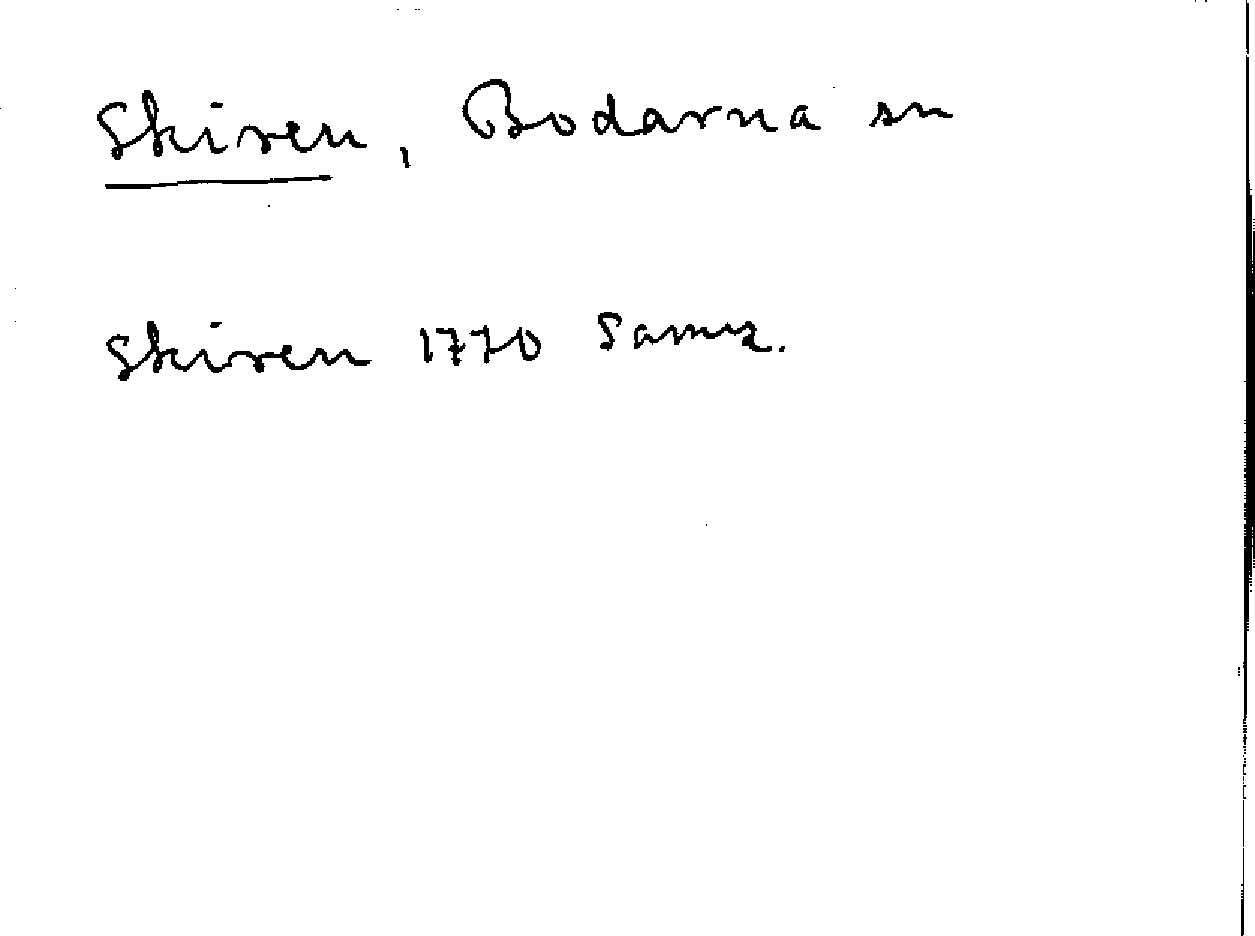 Skiren, Bodarna sn
Skiren 1770